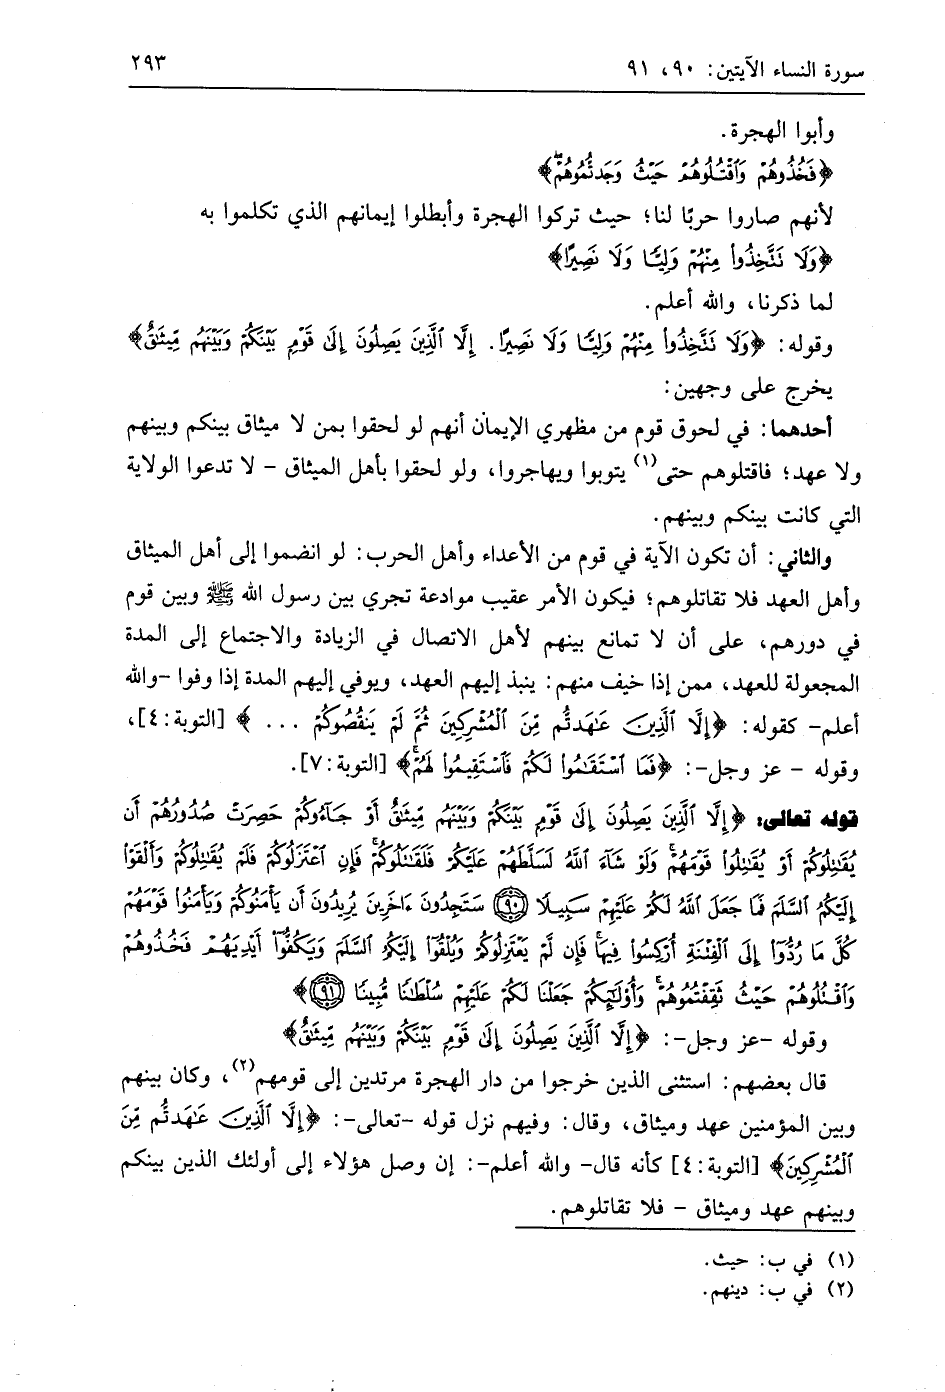 سورة النساء الآيتين: ٩٠، ٩١
٢٩٣
وأبوا الهجرة.
﴿فَخُذُوهُمْ وَٱقْتُلُوهُمْ حَيْثُ وَجَدتُّمُوهُمْۖ﴾
لأنهم صاروا حربًا لنا؛ حيث تركوا الهجرة وأبطلوا إيمانهم الذي تكلموا به
﴿وَلَا تَتَّخِذُوا۟ مِنْهُمْ وَلِيًّا وَلَا نَصِيرًا﴾
لما ذكرنا، والله أعلم.
وقوله: ﴿وَلَا تَتَّخِذُوا۟ مِنْهُمْ وَلِيًّا وَلَا نَصِيرًا. إِلَّا ٱلَّذِينَ يَصِلُونَ إِلَىٰ قَوْمٍ بَيْنَكُمْ وَبَيْنَهُم مِّيثَٰقٌ﴾
يخرج على وجهين:
أحدهما: في لحوق قوم من مظهري الإيمان أنهم لو لحقوا بمن لا ميثاق بينكم وبينهم
ولا عهد؛ فاقتلوهم حتى(١) يتوبوا ويهاجروا، ولو لحقوا بأهل الميثاق – لا تدعوا الولاية
التي كانت بينكم وبينهم.
والثاني: أن تكون الآية في قوم من الأعداء وأهل الحرب: لو انضموا إلى أهل الميثاق
وأهل العهد فلا تقاتلوهم؛ فيكون الأمر عقيب موادعة تجري بين رسول الله ﷺ وبين قوم
في دورهم، على أن لا تمانع بينهم لأهل الاتصال في الزيادة والاجتماع إلى المدة
المجعولة للعهد، ممن إذا خيف منهم: ينبذ إليهم العهد، ويوفي إليهم المدة إذا وفوا –والله
أعلم– كقوله: ﴿إِلَّا ٱلَّذِينَ عَٰهَدتُّم مِّنَ ٱلْمُشْرِكِينَ ثُمَّ لَمْ يَنقُصُوكُمْ ...﴾ [التوبة:٤]،
وقوله – عز وجل–: ﴿فَمَا ٱسْتَقَٰمُوا۟ لَكُمْ فَٱسْتَقِيمُوا۟ لَهُمْۚ﴾ [التوبة:٧].
قوله تعالى: ﴿إِلَّا ٱلَّذِينَ يَصِلُونَ إِلَىٰ قَوْمٍ بَيْنَكُمْ وَبَيْنَهُم مِّيثَٰقٌ أَوْ جَآءُوكُمْ حَصِرَتْ صُدُورُهُمْ أَن
يُقَٰتِلُوكُمْ أَوْ يُقَٰتِلُوا۟ قَوْمَهُمْۚ وَلَوْ شَآءَ ٱللَّهُ لَسَلَّطَهُمْ عَلَيْكُمْ فَلَقَٰتَلُوكُمْۚ فَإِنِ ٱعْتَزَلُوكُمْ فَلَمْ يُقَٰتِلُوكُمْ وَأَلْقَوْا۟
إِلَيْكُمُ ٱلسَّلَمَ فَمَا جَعَلَ ٱللَّهُ لَكُمْ عَلَيْهِمْ سَبِيلًا ٩٠ سَتَجِدُونَ ءَاخَرِينَ يُرِيدُونَ أَن يَأْمَنُوكُمْ وَيَأْمَنُوا۟ قَوْمَهُمْ
كُلَّ مَا رُدُّوٓا۟ إِلَى ٱلْفِتْنَةِ أُرْكِسُوا۟ فِيهَاۚ فَإِن لَّمْ يَعْتَزِلُوكُمْ وَيُلْقُوٓا۟ إِلَيْكُمُ ٱلسَّلَمَ وَيَكُفُّوٓا۟ أَيْدِيَهُمْ فَخُذُوهُمْ
وَٱقْتُلُوهُمْ حَيْثُ ثَقِفْتُمُوهُمْۚ وَأُو۟لَٰٓئِكُمْ جَعَلْنَا لَكُمْ عَلَيْهِمْ سُلْطَٰنًا مُّبِينًا ٩١﴾
وقوله –عز وجل–: ﴿إِلَّا ٱلَّذِينَ يَصِلُونَ إِلَىٰ قَوْمٍ بَيْنَكُمْ وَبَيْنَهُم مِّيثَٰقٌ﴾
قال بعضهم: استثنى الذين خرجوا من دار الهجرة مرتدين إلى قومهم(٢)، وكان بينهم
وبين المؤمنين عهد وميثاق، وقال: وفيهم نزل قوله –تعالى–: ﴿إِلَّا ٱلَّذِينَ عَٰهَدتُّم مِّنَ
ٱلْمُشْرِكِينَ﴾ [التوبة:٤] كأنه قال– والله أعلم–: إن وصل هؤلاء إلى أولئك الذين بينكم
وبينهم عهد وميثاق – فلا تقاتلوهم.
(١) في ب: حيث.
(٢) في ب: دينهم.